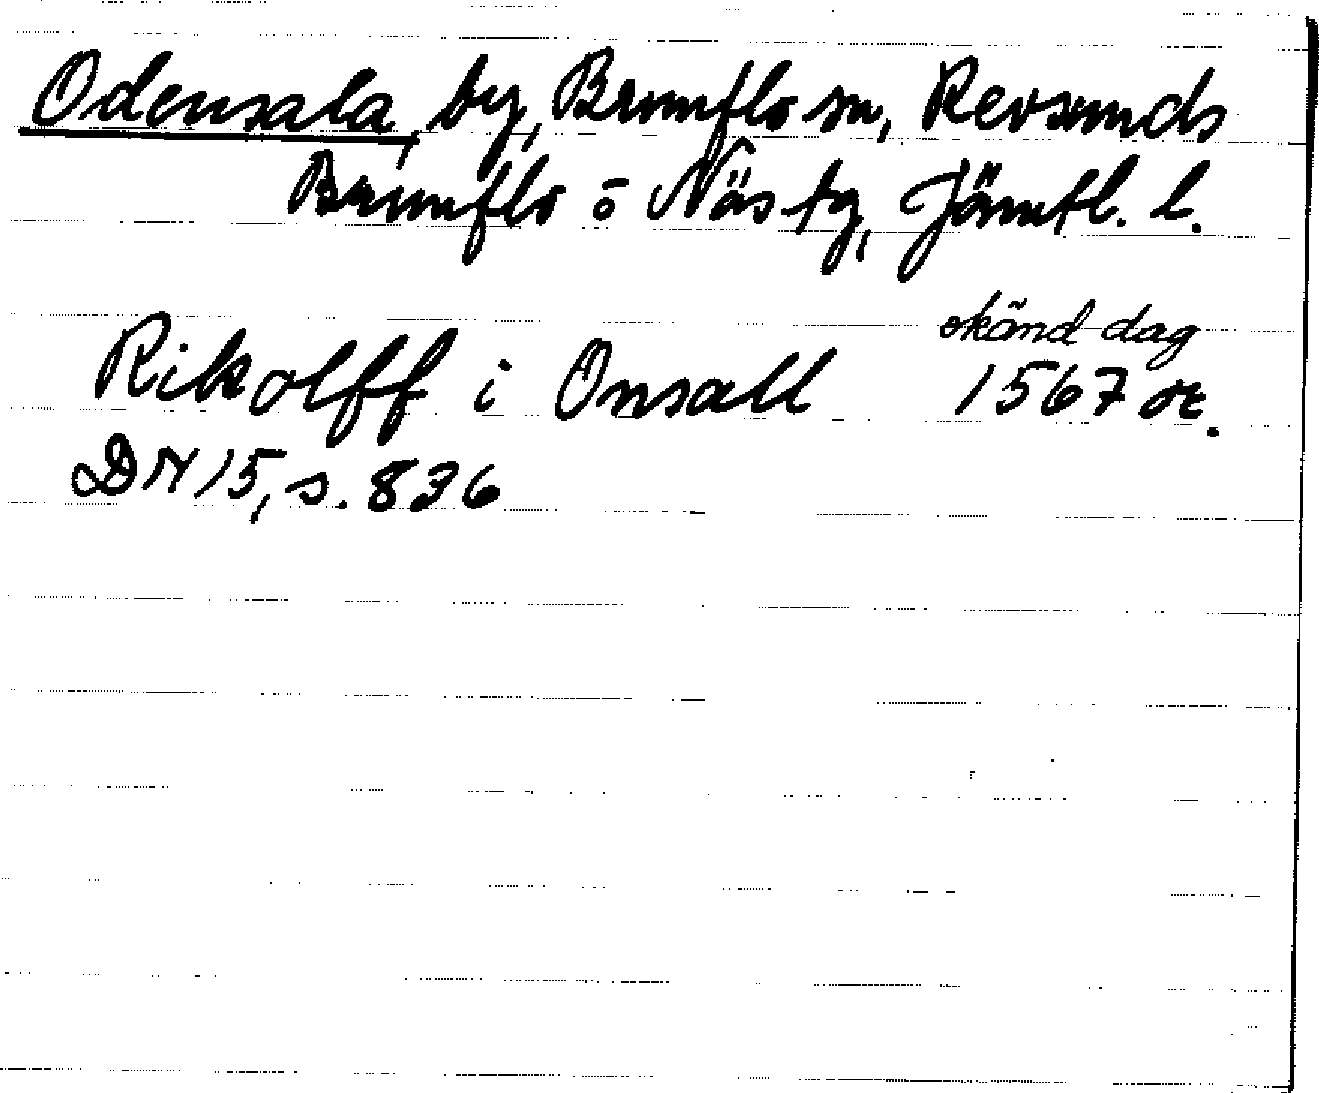 Odensala, by, Brunflo sn, Revsunds
Brunflo o Näs tg, Jämtl. l.
okänd dag
Rikolff i Onsall 1567 or.
DN 15, s. 836